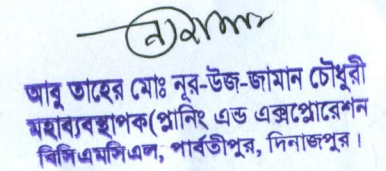 আবু তাহের মোঃ নূর-উজ-জামান চৌধুরী
মহাব্যবস্থাপক(প্লানিং এন্ড এক্সপ্লোরেশন
বিসিএমসিএল, পার্বতীপুর, দিনাজপুর।